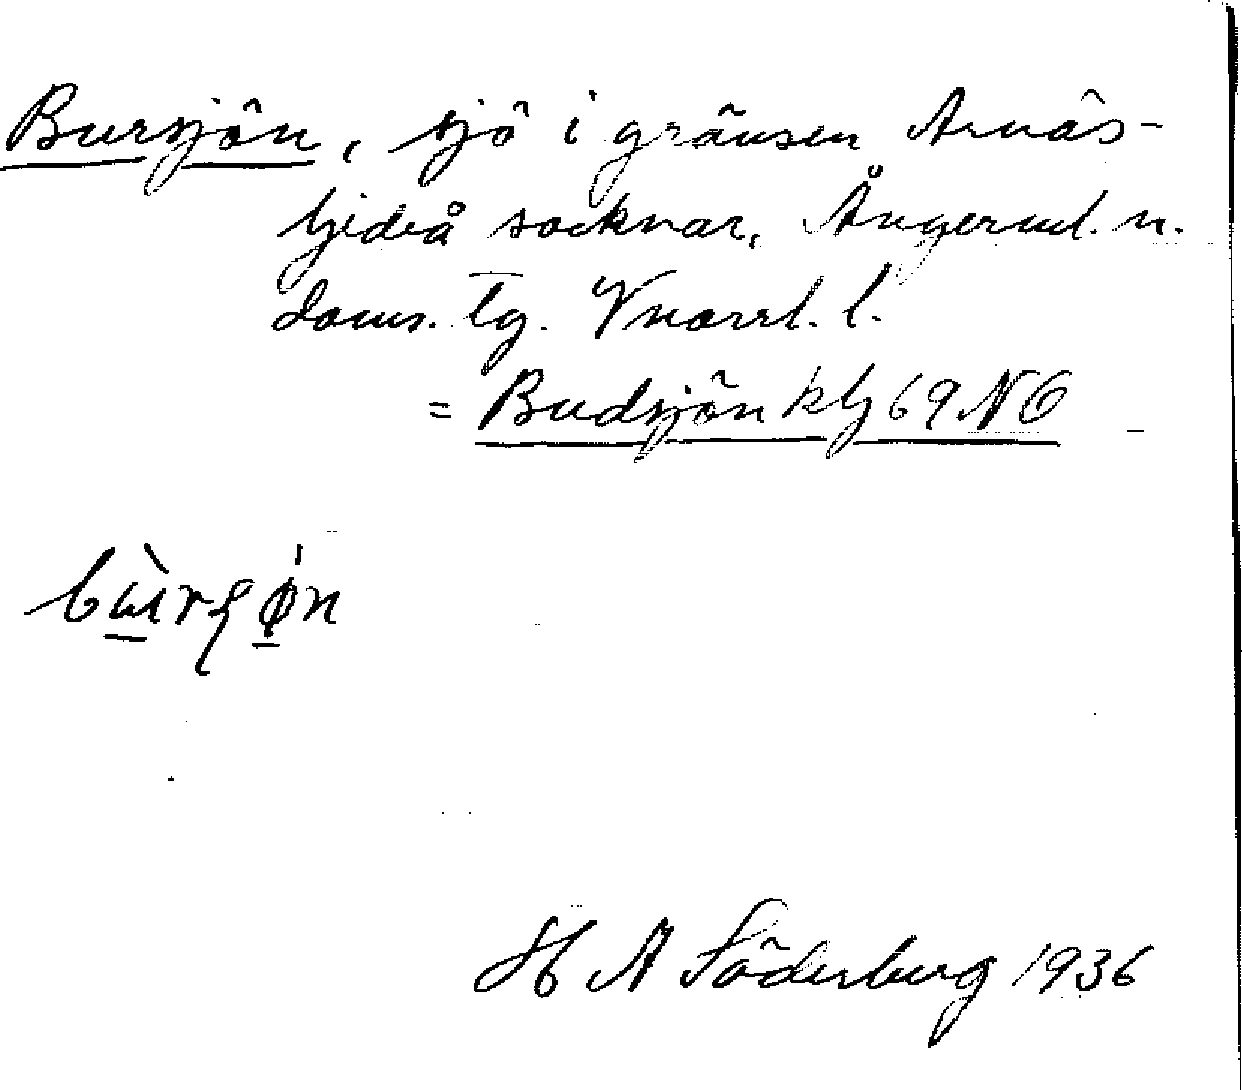 Bursjön, sjö i gränsen Arnäs-
Gideå socknar, Ångerml. n.
doms. tg. Vnorrl. l.
= Budsjön kbl 69 NO
bùrʂøn
H A Söderberg 1936